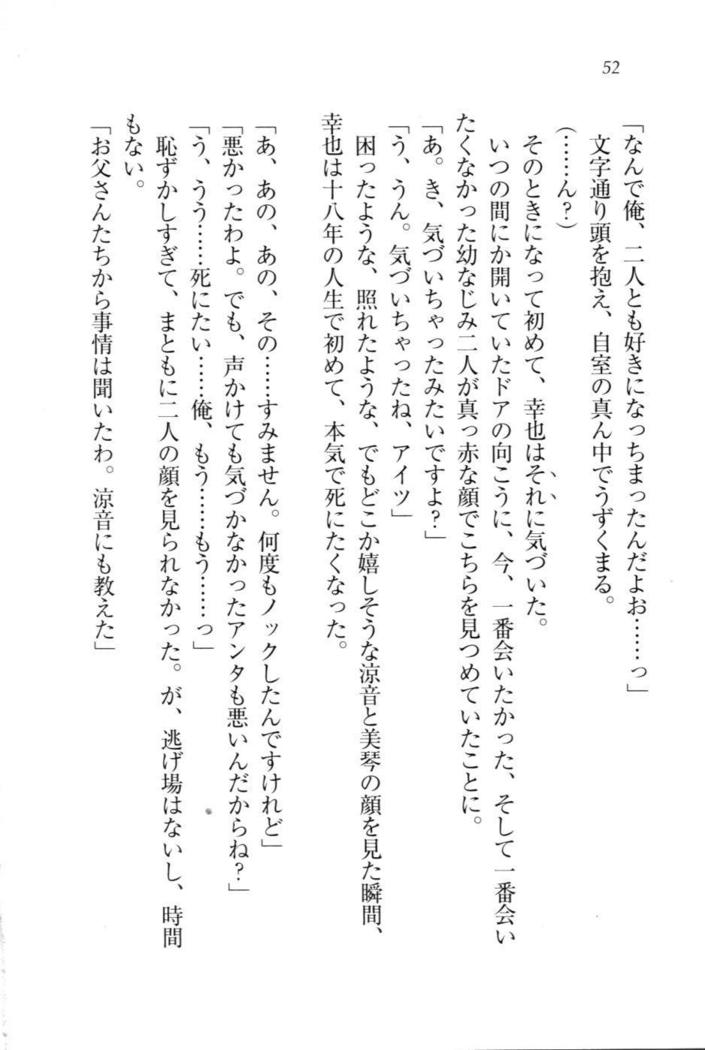 52
「なんで俺、二人とも好きになっちまったんだよお……っ」
文字通り頭を抱え、自室の真ん中でうずくまる。
(……ん?)
そのときになって初めて、幸也はそれに気づいた。
いつの間にか開いていたドアの向こうに、今、一番会いたかった、そして一番会い
たくなかった幼なじみ二人が真っ赤な顔でこちらを見つめていたことに。
「あ。き、気づいちゃったみたいですよ?」
「う、うん。気づいちゃったね、アイツ」
困ったような、照れたような、でもどこか嬉しそうな涼音と美琴の顔を見た瞬間、
幸也は十八年の人生で初めて、本気で死にたくなった。
「あ、あの、あの、その……すみません。何度もノックしたんですけれど」
「悪かったわよ。でも、声かけても気づかなかったアンタも悪いんだからね?」
「う、うう……死にたい……俺、もう……もう……っ」
恥ずかしすぎて、まともに二人の顔を見られなかった。が、逃げ場はないし、時間
もない。
「お父さんたちから事情は聞いたわ。涼音にも教えた」